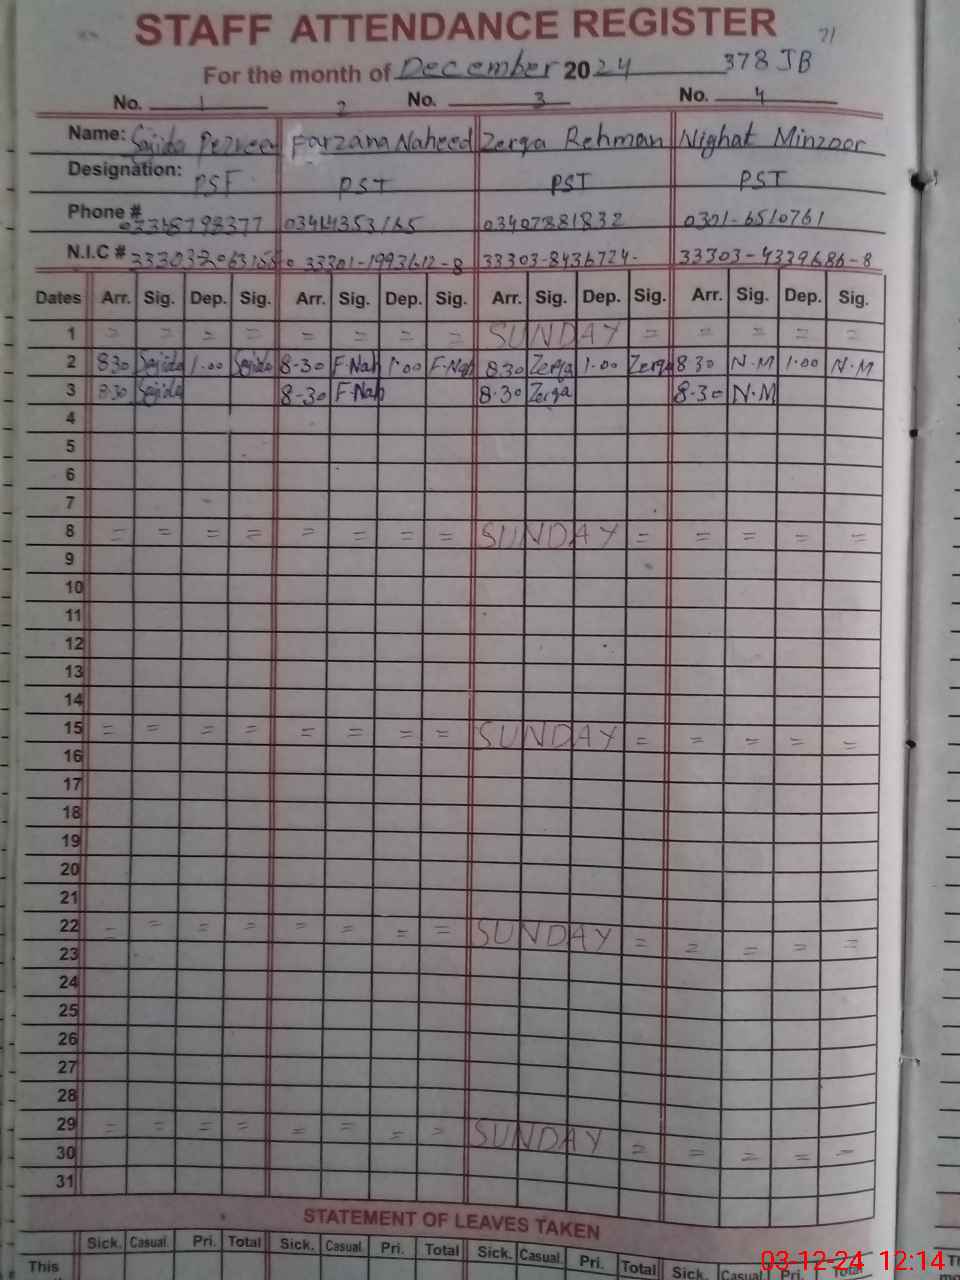 STAFF ATTENDANCE REGISTER
71
For the month of December 2024 378 JB
No. 1 2 No. 3 No. 4
Name: Sajida Perveen Farzana Naheed Zerqa Rehman Nighat Minzoor
Designation: PST PST PST PST
Phone # 03414353165 03407881832 0301-6510761
N.I.C # 33301-1993612-8 33303-8436724- 33303-4329686-8
Dates Arr. Sig. Dep. Sig. Arr. Sig. Dep. Sig. Arr. Sig. Dep. Sig. Arr. Sig. Dep. Sig.
1 = = = = = = = = SUNDAY = = = = =
2 8 30 Sajida 1.00 Sajida 8-30 F.Nah 1.00 F.Nah 8.30 Zerqa 1.00 Zerqa 8 30 N.M 1.00 N.M
3 8.30 Sajida 8-30 F.Nah 8.30 Zerqa 8.30 N.M
4
5
6
7
8 = = = = = = = = SUNDAY = = = = =
9
10
11
12
13
14
15 = = = = = = = = SUNDAY = = = = =
16
17
18
19
20
21
22 = = = = = = = = SUNDAY = = = = =
23
24
25
26
27
28
29 = = = = = = = = SUNDAY = = = = =
30
31
STATEMENT OF LEAVES TAKEN
Sick. Casual. Pri. Total Sick. Casual. Pri. Total Sick. Casual. Pri. Total Sick. Casual. Pri. Total
This
03-12-24 12:14